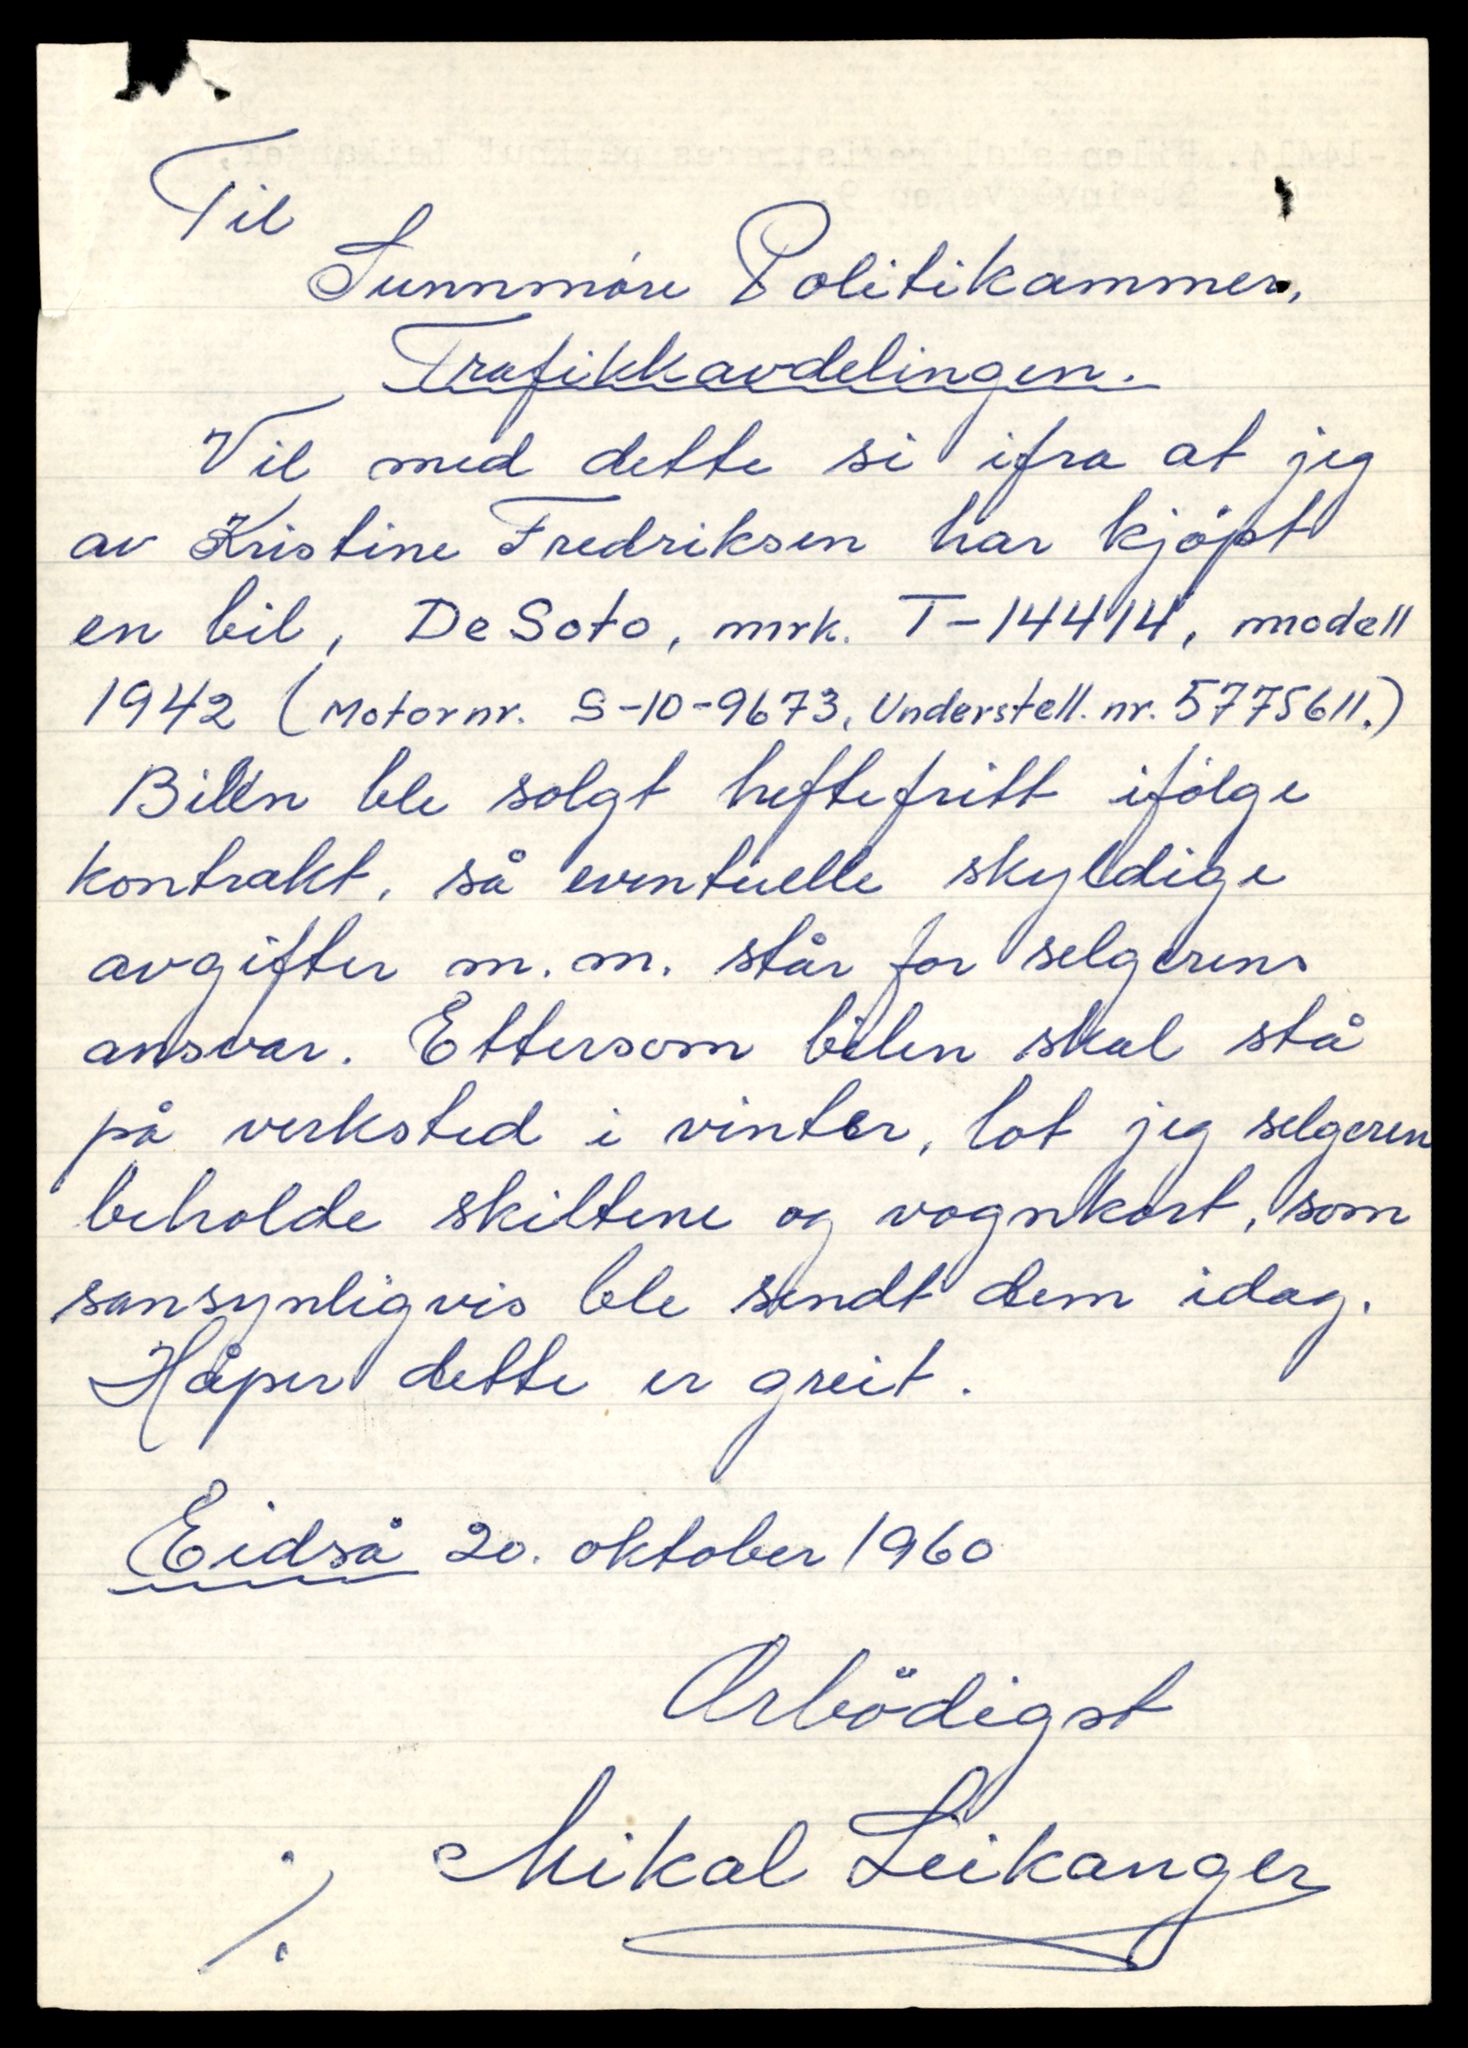 Til
Sunnmøre Politikammer,
Trafikkavdelingen.
Vil med dette si ifra at jeg
av Kristine Fredriksen har kjöpt
en bil, De Soto, mrk. T-14414, modell
1942 (Motornr. S-10-9673, Understell. nr. 5775611.)
Bilen ble solgt heftefritt ifölge
kontrakt, så eventuelle skyldige
avgifter m.m. står for selgerens
ansvar. Ettersom bilen skal stå
på verksted i vinter, lot jeg selgeren
beholde skiltene og vognkort, som
sansynligvis ble sendt dem idag.
Håper dette er greit.
Eidså 20. oktober 1960
Arbödigst
Mikal Leikanger
./.